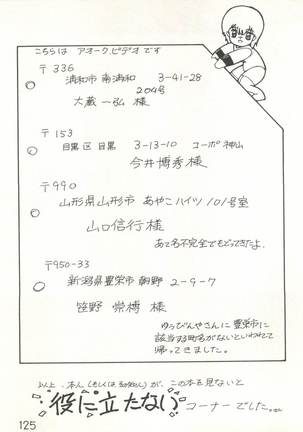 こちらは アオーク・ビデオ です
〒336
浦和市 南浦和 3-41-28
204号
大蔵 一弘 様
〒153
目黒区 目黒 3-13-10 コーポ 神山
今井博秀 様
〒990
山形県山形市 あやこハイツ 101号室
山口信行 様
あて名不完全でもどってきたよ。
〒950-33
新潟県豊栄市 朝野 2-9-7
笹野 崇樽 様
ゆうびんやさんに 豊栄市に
該当する町名がないといわれて
帰ってきました。
以上、本人(もしくはお知り合い)が、この本を見ないと
役に立たない コーナーでした。
125